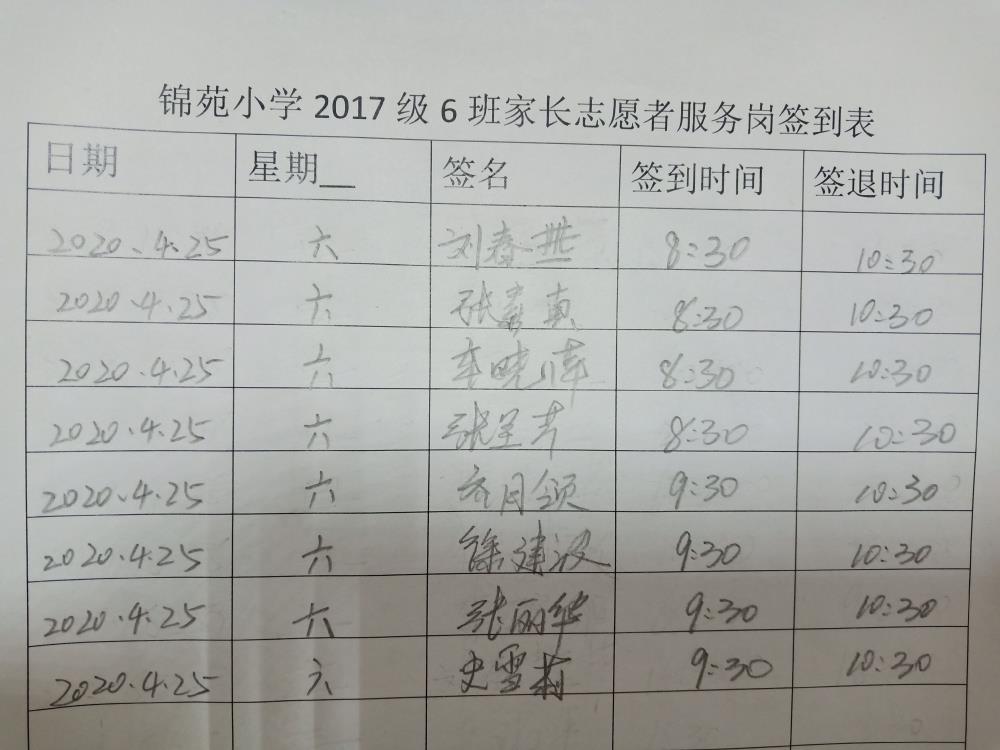 锦苑小学 2017 级 6 班家长志愿者服务岗签到表
日期 星期__ 签名 签到时间 签退时间
2020.4.25 六 刘春燕 8:30 10:30
2020.4.25 六 张嘉真 8:30 10:30
2020.4.25 六 车晓伟 8:30 10:30
2020.4.25 六 张呈芹 8:30 10:30
2020.4.25 六 齐月颂 9:30 10:30
2020.4.25 六 徐建波 9:30 10:30
2020.4.25 六 张丽华 9:30 10:30
2020.4.25 六 史雪莉 9:30 10:30